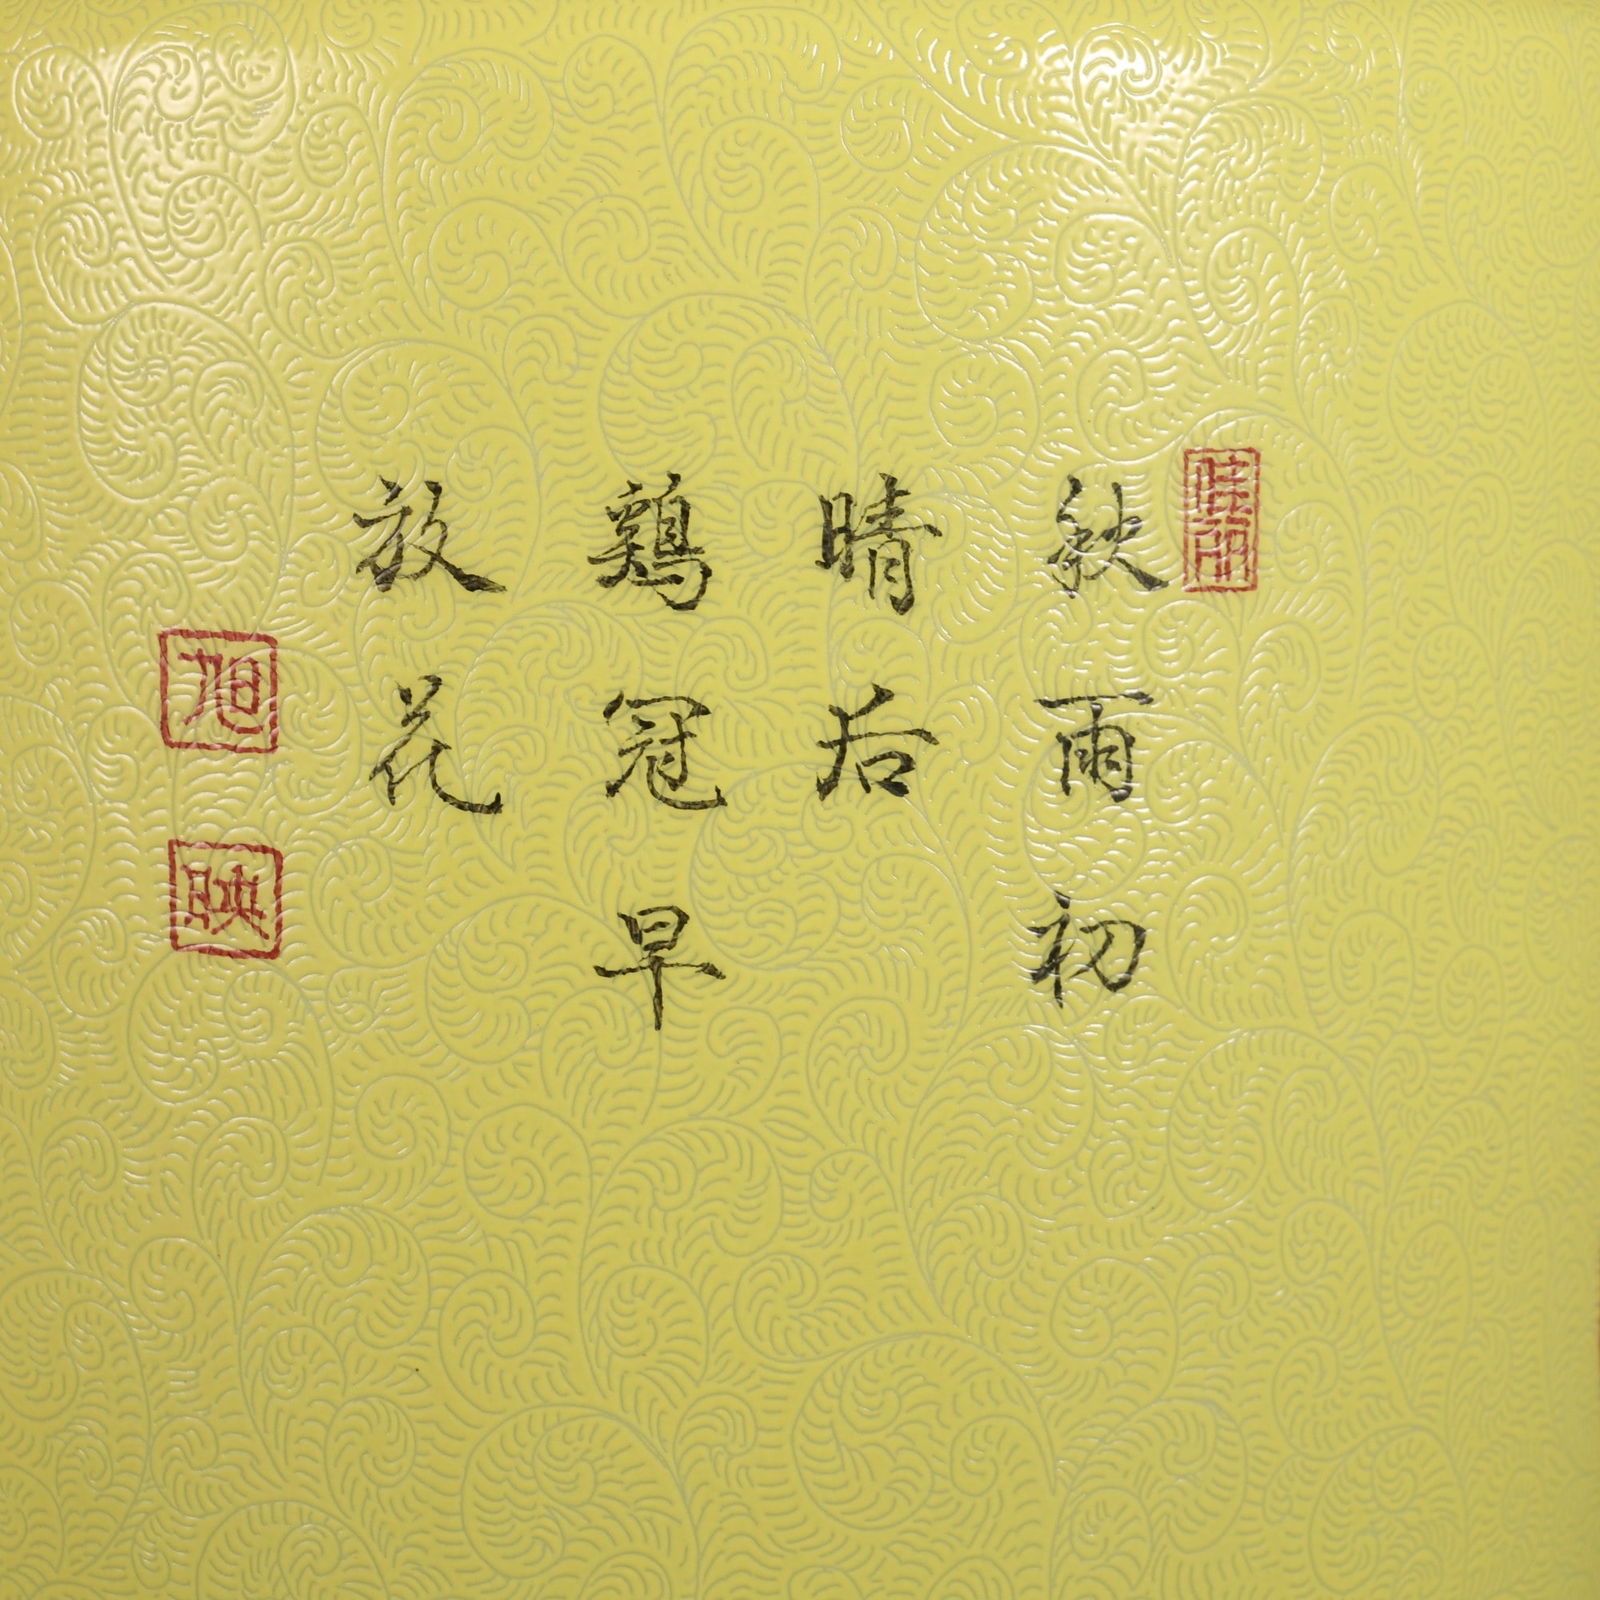 秋雨初
晴后
鷄冠早
放花
旭
映